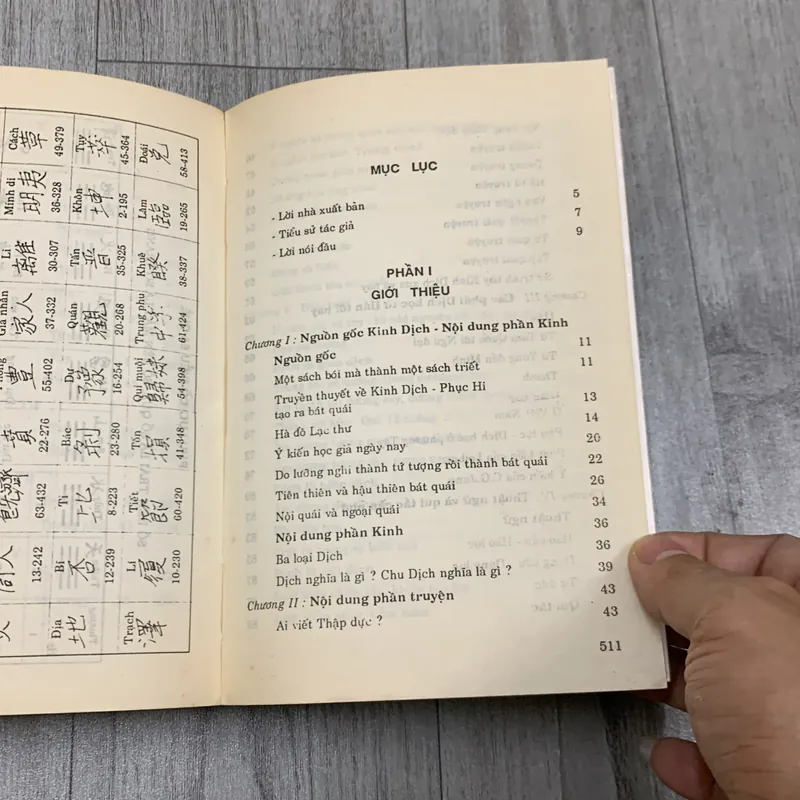 Cách
革
49-379
Tụy
萃
45-364
Đoái
兌
58-413
Minh di
明夷
36-328
Khôn
坤
2-195
Lâm
臨
19-265
Li
離
30-307
Tấn
晉
35-325
Khuê
睽
38-337
Gia nhân
家人
37-332
Quán
觀
20-268
Trung phu
中孚
61-424
豐
55-402
Dự
豫
16-254
Qui muội
歸妹
54-398
賁
22-276
Bác
剝
23-280
Tổn
損
41-348
既濟
63-432
Tỉ
比
8-223
Tiết
節
60-420
同人
13-242
Bĩ
否
12-239
Lí
履
10-230
火
Địa
地
Trạch
澤
MỤC LỤC
- Lời nhà xuất bản 5
- Tiểu sử tác giả 7
- Lời nói đầu 9
PHẦN I
GIỚI THIỆU
Chương I : Nguồn gốc Kinh Dịch - Nội dung phần Kinh
Nguồn gốc 11
Một sách bói mà thành một sách triết 11
Truyền thuyết về Kinh Dịch - Phục Hi
tạo ra bát quái 13
Hà đồ Lạc thư 14
Ý kiến học giả ngày nay 20
Do lưỡng nghi thành tứ tượng rồi thành bát quái 22
Tiên thiên và hậu thiên bát quái 26
Nội quái và ngoại quái 34
Nội dung phần Kinh 36
Ba loại Dịch 36
Dịch nghĩa là gì ? Chu Dịch nghĩa là gì ? 39
Chương II : Nội dung phần truyện 43
Ai viết Thập dực ? 43
511